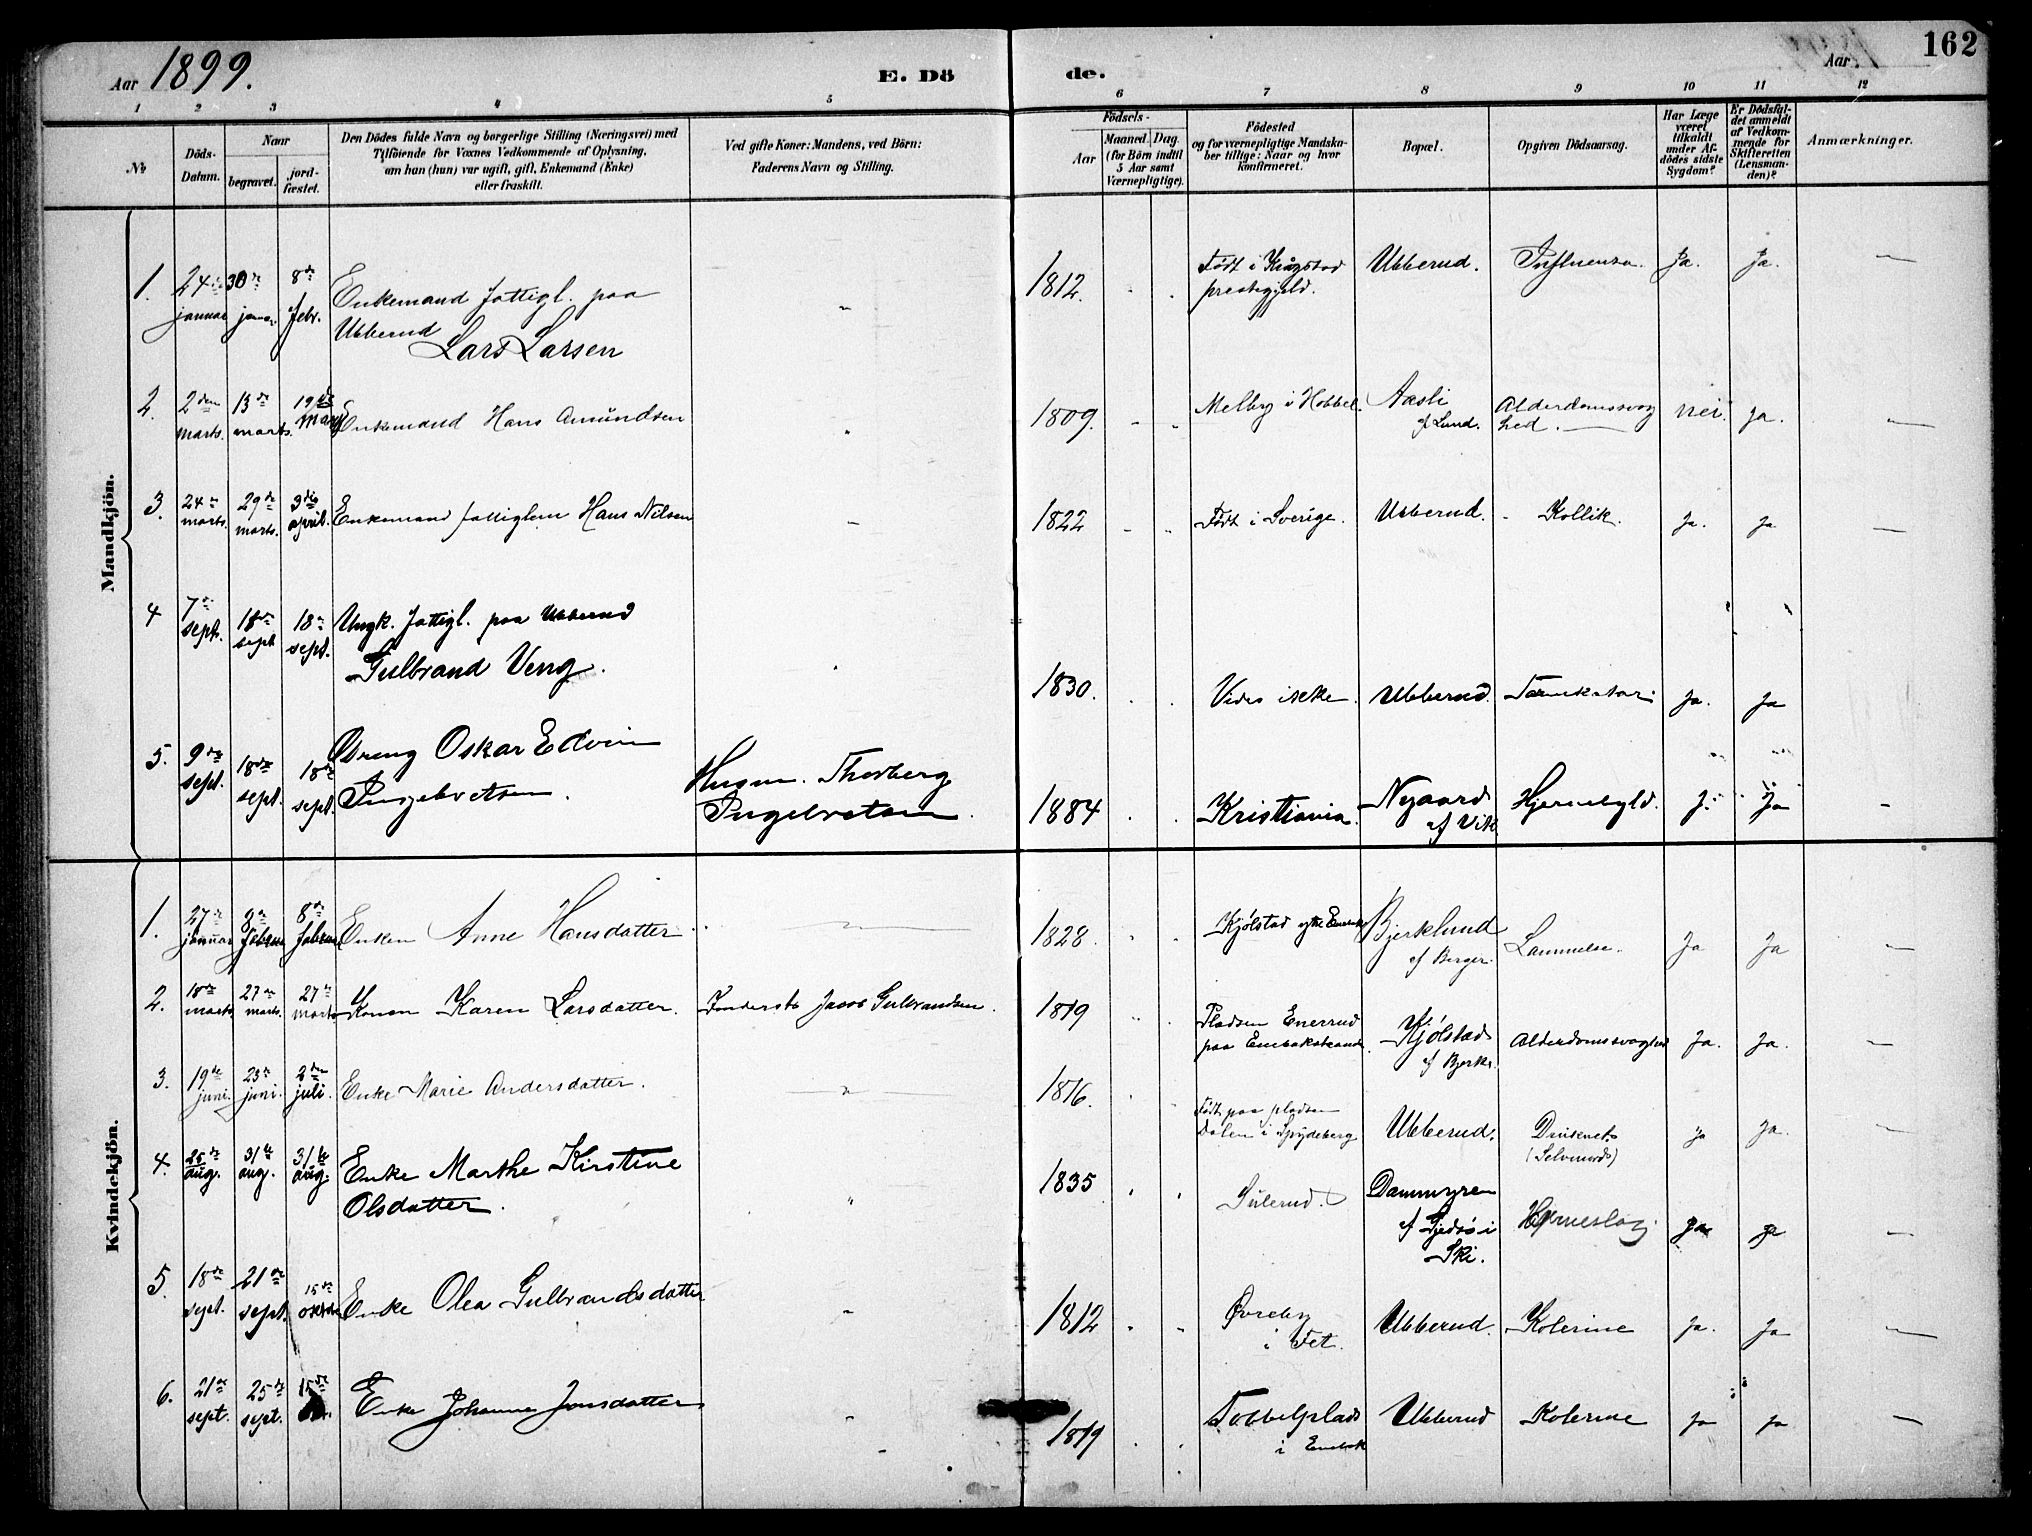 Aar 1899.
E. Dö
de.
Aar
162
1
2
3
4
5
6
7
8
9
10
11
12
No
Döds-
Datum.
Naar
begravet.
jord-
fæstet.
Den Dödes fulde Navn og borgerlige Stilling (Næringsvei) med
Tilföiende for Voxnes Vedkommende af Oplysning,
om han (hun) var ugift, gift, Enkemand (Enke)
eller fraskilt.
Ved gifte Koner: Mandens, ved Börn:
Faderens Navn og Stilling.
Födsels-
Aar
Maaned. Dag.
(for Börn indtil
5 Aar samt
Værnepligtige).
Födested
og for værnepligtige Mandska-
ber tillige: Naar og hvor
konfirmeret.
Bopæl.
Opgiven Dödsaarsag.
Har Læge
været
tilkaldt
under Af-
dödes sidste
Sygdom?
Er Dödsfal-
det anmeldt
af Vedkom-
mende for
Skifteretten
(Lensman-
den)?
Anmærkninger.
Mandkjön.
1. 24de 30de 8de
januar janu. febr.
Enkemand fattigl. paa
Ubberud
Lars Larsen
1812.
Födt i Krågstad
prestegjeld.
Ubberud. Influensa. ja. ja.
2. 2den 13de 19de
marts. marts. marts
Enkemand Hans Amundsen
1809. Melby i Hobbel. Aasli
af Lund.
Alderdomssvag
hed.
nei. ja.
3. 24de 29de 3die
marts. marts. april.
Enkemand fattiglem Hans Nilsen
1822 Födt i Sverige. Ubberud. Kollik. ja. ja
4 7de 18de 18de
sept. sept sept.
Ungk. fattigl. paa Ubberud
Gulbrand Veng.
1830. Vides ikke. Ubberud. ja. ja
5. 9de 18de 18de
sept. sept. sept.
Dreng Oskar Edvin
Ingebretsen.
Husm. Thorberg
Ingebretsen.
1884 Kristiania. Nygaard
af Vik
Hjernebyld. j. ja
Kvindekjön.
1. 27de 8de 8de
januar
Enken Anne Hansdatter
1828. Kjölstad Bjerklund
af Berger.
Lammelse. ja ja
2. 18de 27de 27de
marts. marts. marts
Konen Karen Larsdatter. Inderst Jacob Gulbrandsen.
1819 Pladsen Enerrud
paa
Kjölstad
af Bjerke.
Alderdomssvaghed ja. ja.
3. 19de 23de 2den
juni. juni. juli.
Enke Marie Andersdatter.
1816. Födt paa pladsen
Dalen i Spydeberg
Ubberud. Druknet
(Selvmord)
ja ja.
4. 25de 31te 31te
aug. aug. aug.
Enke Marthe Kirstine
Olsdatter.
1835 Sulerud. Dammyren
af i
Ski.
Hjerneslag. ja ja
5. 18de 21de 15de
sept. sept.
Enke Olea Gulbrandsdatter
1812 Øvreby
i Fet.
Ubberud. Kolerine ja. ja
6. 21de 25de 15de
sept. sept.
Enke Johanne Jonsdatter
1819 Tobbelplads
i Enebak
Ubberud Kolerine ja ja